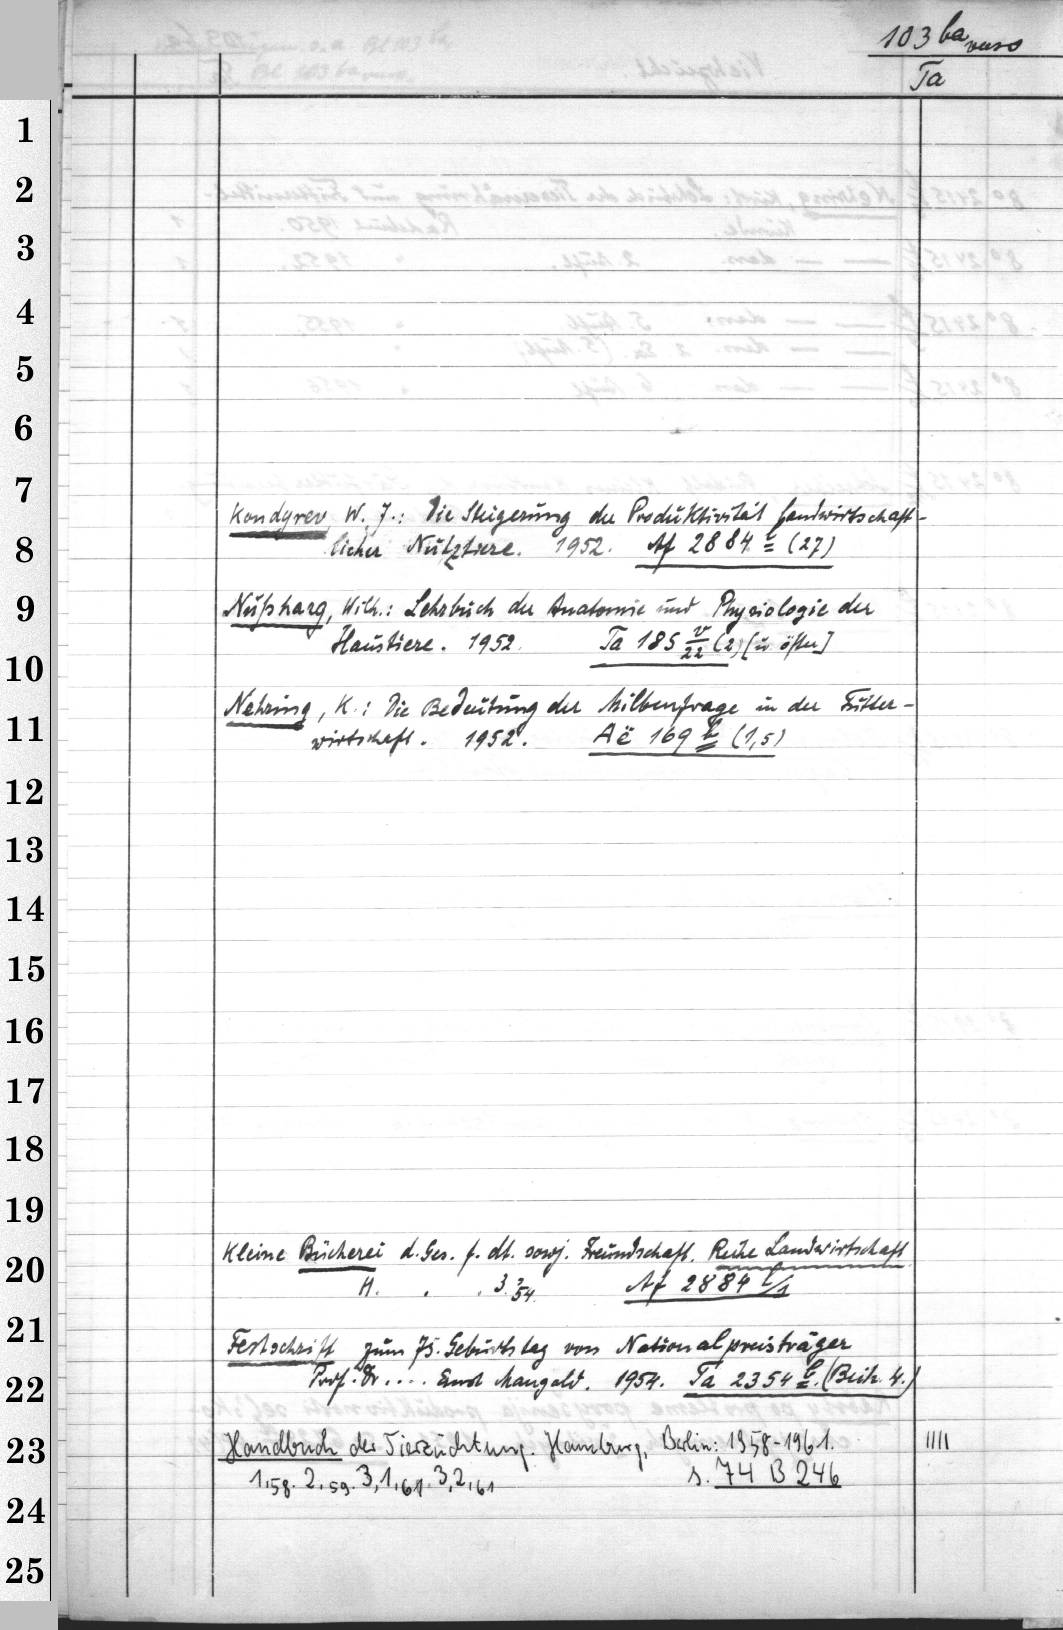 103 ba verso
Ta
1
2
3
4
5
6
7
Kondyrev, W. J.: Die Steigerung der Produktivität landwirtschaft-
8
licher Nutztiere. 1952. Af 2884 (27)
9
Nußhag, Wilh.: Lehrbuch der Anatomie und Physiologie der
Haustiere. 1952. Ta 185 v/22 (2) [u. öfter]
10
Nehring, K.: Die Bedeutung der Milbenfrage in der Futter-
11
wirtschaft. 1952. Aë 169 (1,5)
12
13
14
15
16
17
18
19
Kleine Bücherei d. Ges. f. dt. sowj. Freundschaft. Reihe Landwirtschaft
20
H. . . 3.54. Af 2884
21
Festschrift zum 75. Geburtstag von Nationalpreisträger
22
Prof. Dr. ... Ernst Mangold. 1954. Ta 2354 (Beih. 4.)
23
Handbuch der Tierzüchtung. Hamburg, Berlin: 1958-1961. IIII
1,58. 2,59. 3,1,61. 3,2,61 s. 74 B 246
24
25